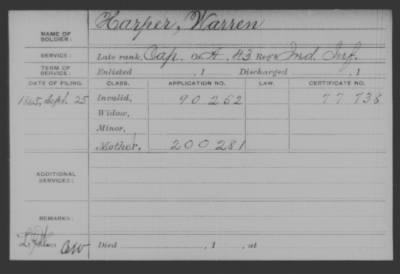 NAME OF SOLDIER: Harper, Warren
SERVICE: Late rank, Cap. Co A, 43 Reg't Ind. Inf.
TERM OF SERVICE: Enlisted , 1 Discharged , 1
DATE OF FILING. CLASS. APPLICATION NO. LAW. CERTIFICATE NO.
1865, Sept. 25 Invalid, 90 262 77 738
Widow,
Minor,
Mother, 200 281
ADDITIONAL SERVICES:
REMARKS:
Died , 1 , at